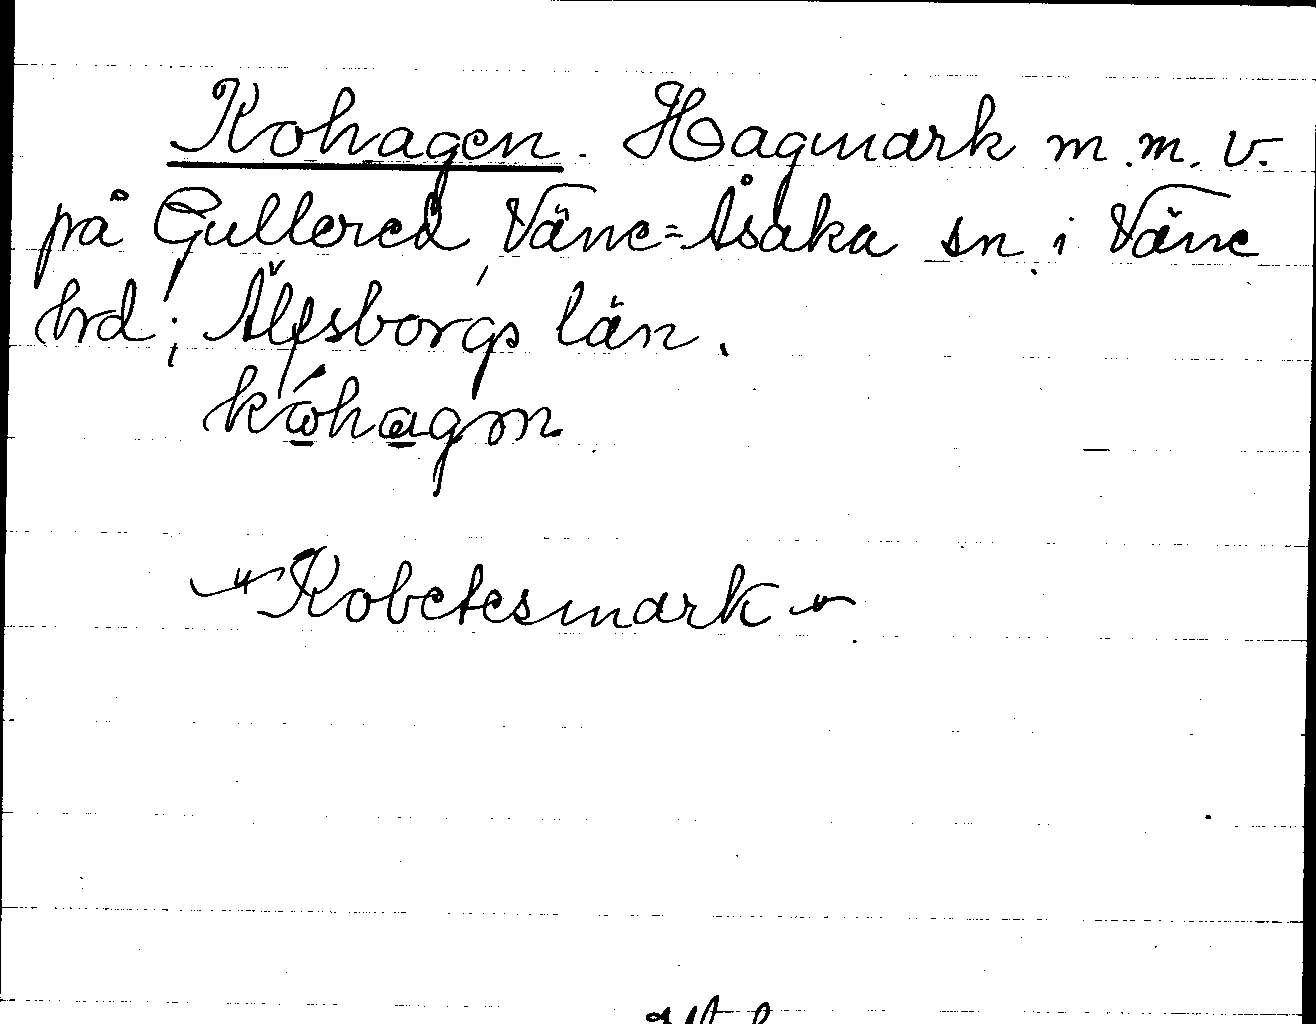 Kohagen. Hagmark m.m. v.
på Gullered, Väne=Åsaka sn. i Väne
hrd; Älfsborgs län.
kóhagen
"Kobetesmark"